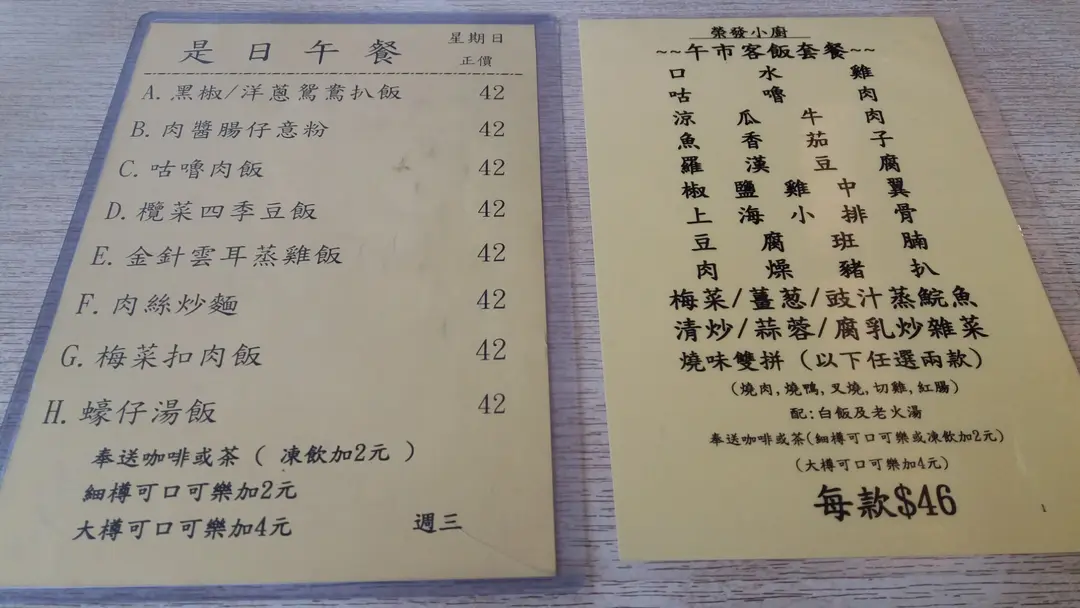 是日午餐
星期日
正價
A. 黑椒/洋蔥鴛鴦扒飯 42
B. 肉醬腸仔意粉 42
C. 咕嚕肉飯 42
D. 欖菜四季豆飯 42
E. 金針雲耳蒸雞飯 42
F. 肉絲炒麵 42
G. 梅菜扣肉飯 42
H. 蠔仔湯飯 42
奉送咖啡或茶 ( 凍飲加2元 )
細樽可口可樂加2元
大樽可口可樂加4元
週三
榮發小廚
~~午市客飯套餐~~
口水雞
咕嚕肉
涼瓜牛肉
魚香茄子
羅漢豆腐
椒鹽雞中翼
上海小排骨
豆腐班腩
肉燥豬扒
梅菜/薑葱/豉汁蒸鯇魚
清炒/蒜蓉/腐乳炒雜菜
燒味雙拼 (以下任選兩款)
(燒肉,燒鴨,叉燒,切雞,紅腸)
配:白飯及老火湯
奉送咖啡或茶(細樽可口可樂或凍飲加2元)
(大樽可口可樂加4元)
每款$46
1